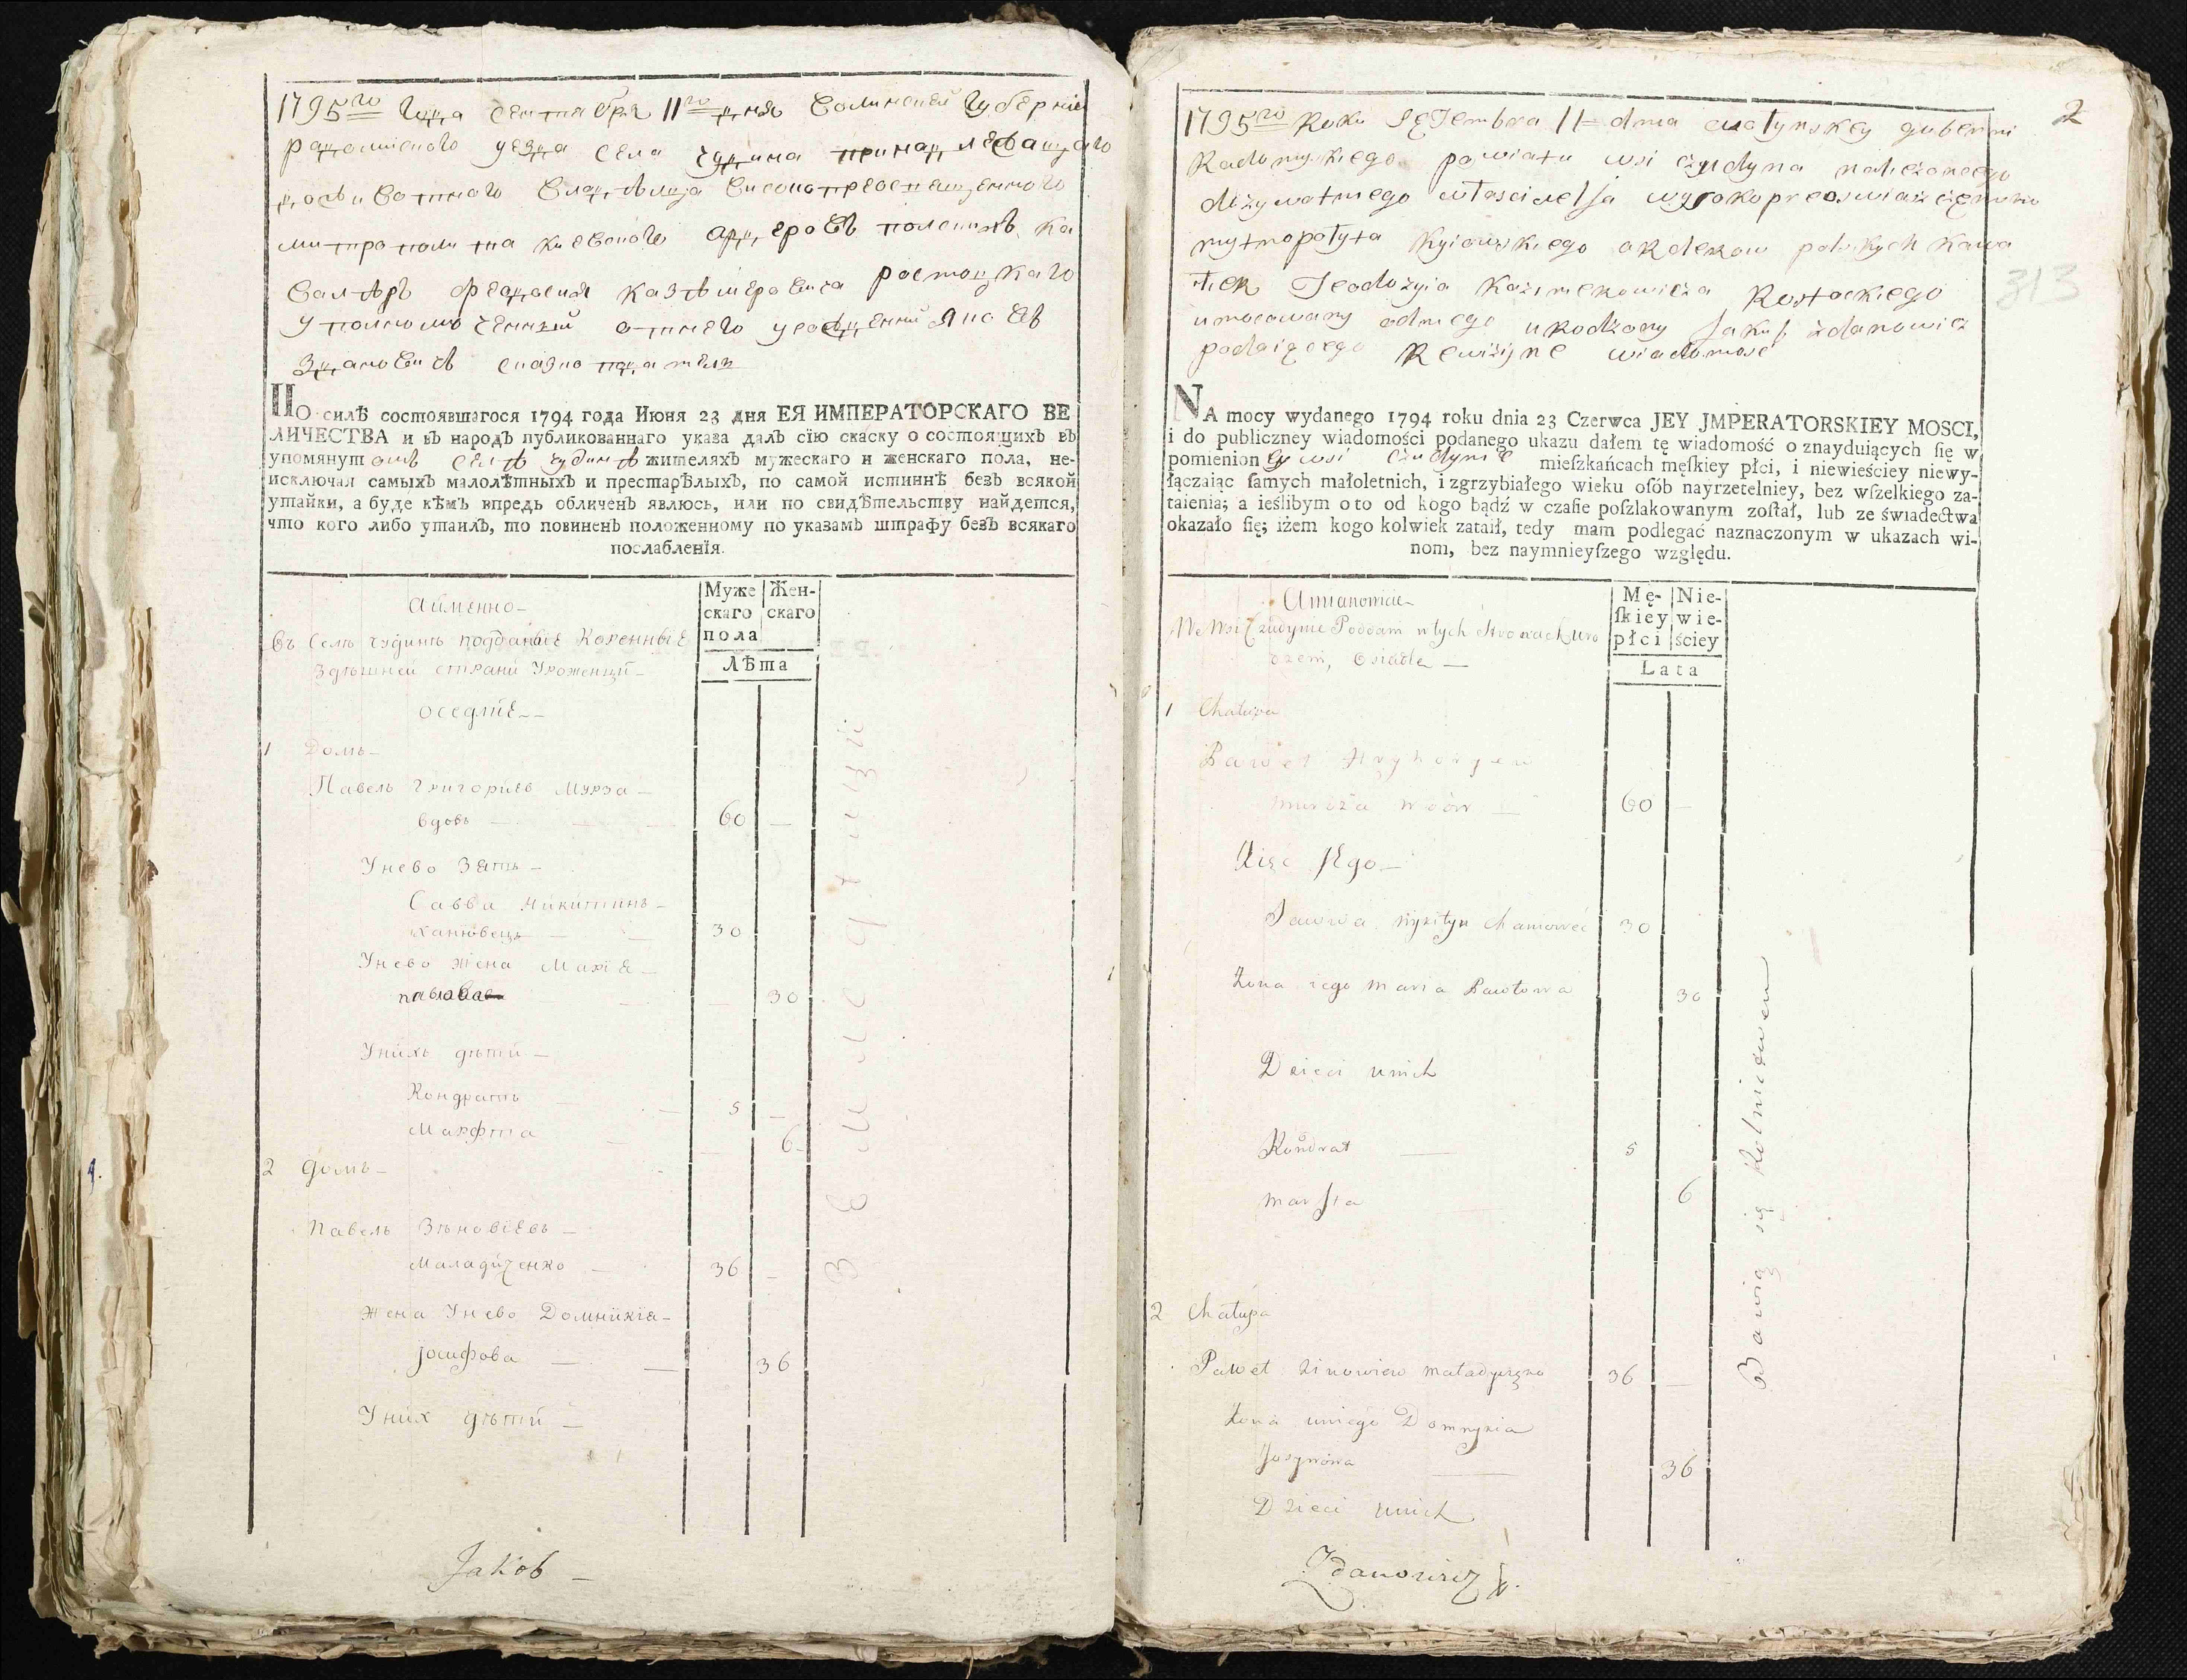 1795го года сентября 11го дня Волинской губернии
радомиского уезда села чудина принадлежащаго
дозывотного владѣлца високопреосвещенного
митрополита киевского ордеровъ полскихъ ка
валѣръ феодосия казѣмировича ростоцкаго
уполномоченний отнего урожденний Яковъ
Здановичъ сказкоподатель
ПО силѣ состоявшагося 1794 года Июня 23 дня ЕЯ ИМПЕРАТОРСКАГО ВЕ
ЛИЧЕСТВА и въ народъ публикованнаго указа далъ сїю скаску о состоящихъ въ
упомянутомъ селѣ чудинѣ жителяхъ мужескаго и женскаго пола, не-
исключая самыхъ малолѣтныхъ и престарѣлыхъ, по самой истиннѣ безъ всякой
утайки, а буде кѣмъ впредь обличенъ явлюсь, или по свидѣтельству найдется,
что кого либо утаилъ, то повиненъ положенному по указамъ штрафу безъ всякаго
послабленїя.
Муже
скаго
пола
Жен-
скаго
Лѣта
Аименно
Въ Селѣ чудинѣ подданые Коренные
Здѣшней страни Уроженци
оседлие
1 Домъ
Павелъ Григориевъ Мурза
вдовъ 60
Унево Зять
Савва Никитинъ
Ханювецъ 30
Унево жена Марія
павлова 30
Унихъ дѣти
Кондратъ 5
Марфта 6
2 домъ
Павелъ Зѣновіевъ
Маладиченко 36
Жена Унево Домникія
Јосифова 36
Уних дѣти
Jakob
2
313
1795го Roku SęTembra 11 dnia wołynskey guberni
Radomyskiego powiatu wsi czudyna należonego
dożywotniego własciciella wysokopreoswiaszczęnnoho
mytropolyta Kyiowskiego orderow polskych Kawa
ler Teodozyia Kazimerowicza Rostockiego
umocowany odniego urodzony Jakub zdanowicz
podaiącego Rewizyine wiadomosc
NA mocy wydanego 1794 roku dnia 23 Czerwca JEY JMPERATORSKIEY MOSCI,
i do publiczney wiadomości podanego ukazu dałem tę wiadomość o znayduiących ſię w
pomienioney wsi Czudynie mieſzkańcach męſkiey płci, i niewieściey niewy-
łączaiąc ſamych małoletnich, i zgrzybiałego wieku oſób nayrzetelniey, bez wſzelkiego za-
taienia; a ieślibym o to od kogo bądź w czaſie poſzlakowanym zoſtał, lub ze świadectwa
okazało ſię; iżem kogo kolwiek zataił, tedy mam podlegać naznaczonym w ukazach wi-
nom, bez naymnieyſzego względu.
Mę-
ſkiey
płci
Nie-
wie-
ściey
Lata
Amianowicie
We Wsi Czudynie Poddani wtych Stronach Uro
dzeni, Osiadłe
1 Chałupa
Paweł Hryhoryew
Murdza wdow 60
Zięc Jego
Sawwa Nykityn Chaniowec 30
Żona iego Maria Pawłowa 30
Dzieci unich
Kondrat 5
Marfta 6
2 Chałupa
Paweł Zinowiew Maładyczęko 36
Żona uniego Domnykia
Josypowa 36
Dzieci unich
Bawią się Rolnictwem
Zdanowicz